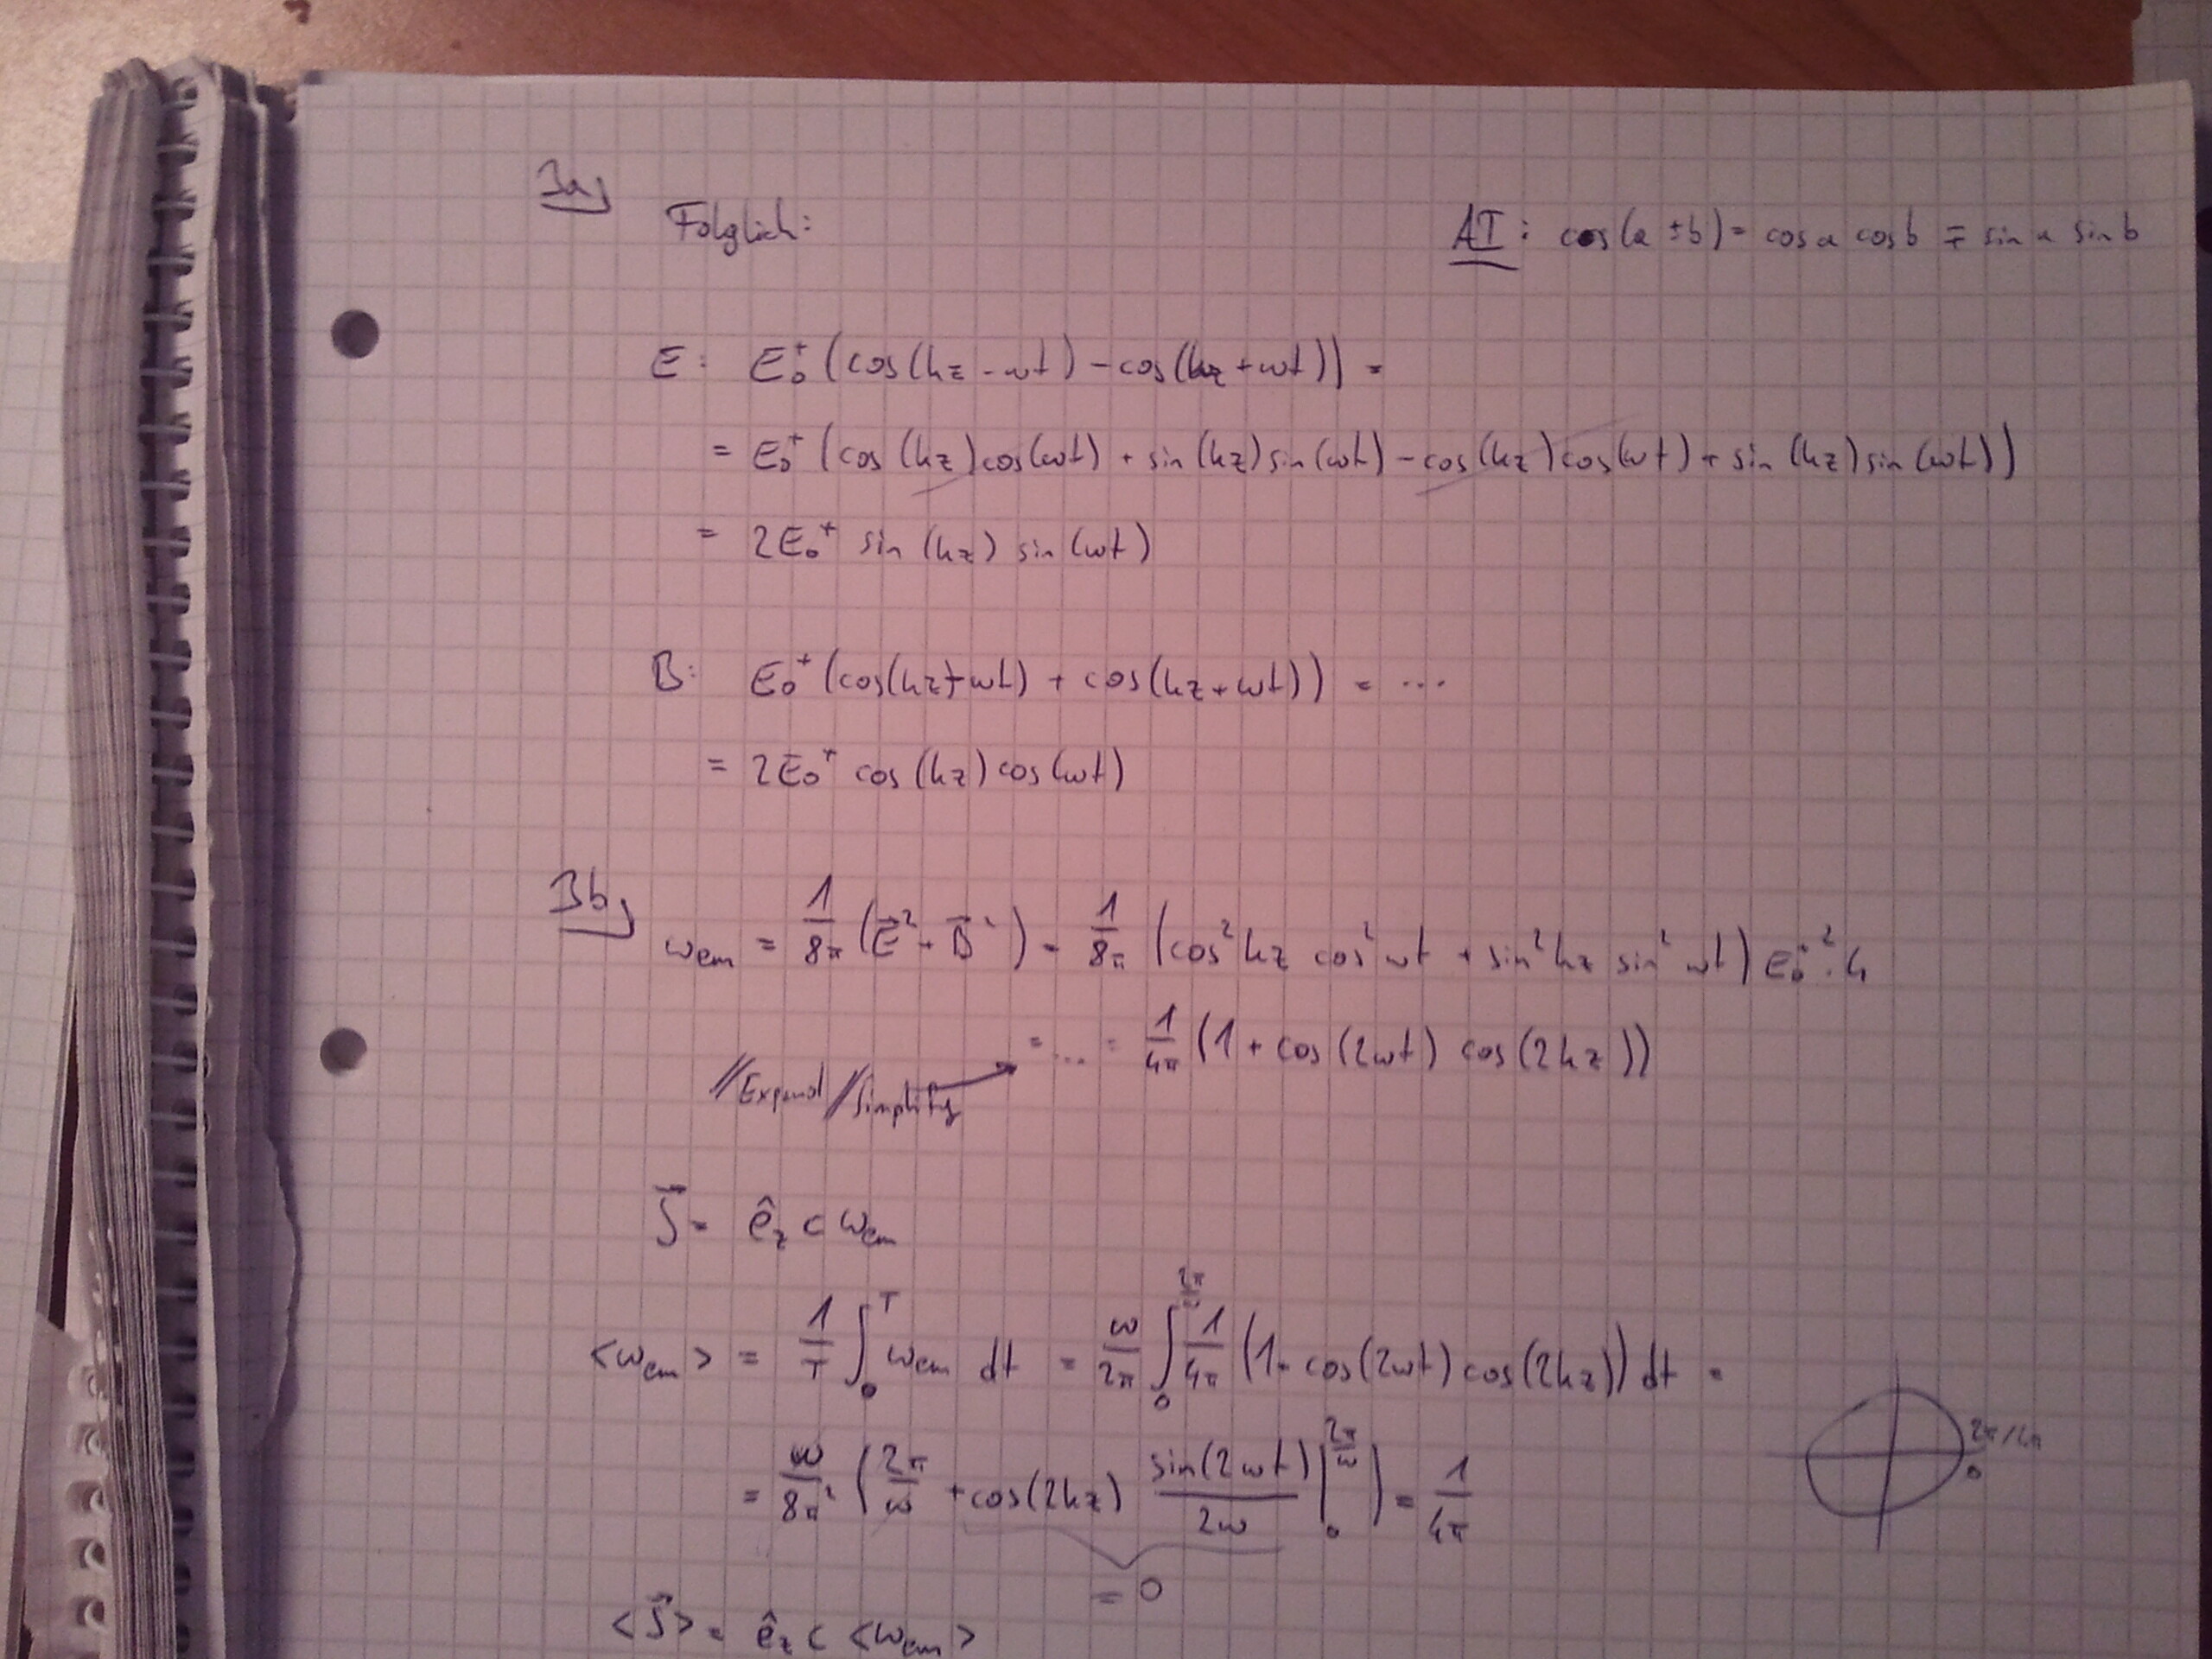 3a)
Folglich:
AT: cos(a ± b) = cos a cos b ∓ sin a sin b
E: E₀⁺ (cos(kz - ωt) - cos(kz + ωt)) =
= E₀⁺ (cos(kz) cos(ωt) + sin(kz) sin(ωt) - cos(kz) cos(ωt) + sin(kz) sin(ωt))
= 2E₀⁺ sin(kz) sin(ωt)
B: E₀⁺ (cos(kz-ωt) + cos(kz+ωt)) = ...
= 2E₀⁺ cos(kz) cos(ωt)
3b)
ωem = 1/8π (E⃗² + B⃗²) = 1/8π (cos² kz cos² ωt + sin² kz sin² ωt) E₀⁺² · 4
= ... = 1/4π (1 + cos(2ωt) cos(2kz))
//Expand//Simplify
S⃗ = ê_z c ωem
<ωem> = 1/T ∫₀^T ωem dt = ω/2π ∫₀^(2π/ω) 1/4π (1 + cos(2ωt) cos(2kz)) dt =
= ω/8π² (2π/ω + cos(2kz) sin(2ωt)/2ω |₀^(2π/ω)) = 1/4π
2π/4π
0
= 0
<S⃗> = ê_z c <ωem>